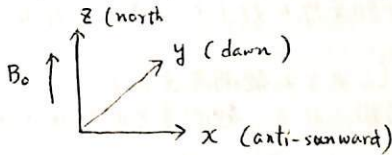 z (north
y (dawn)
B₀
x (anti-sunward)